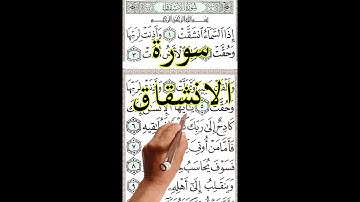 سورة الانشقاق
بسم الله الرحمن الرحيم
إِذَا السَّمَاءُ انشَقَّتْ ١ وَأَذِنَتْ لِرَبِّهَا
وَحُقَّتْ ٢
سورة
الانشقاق
وَحُقَّتْ ٥ يَا أَيُّهَا الْإِنسَانُ
كَادِحٌ إِلَىٰ رَبِّكَ كَدْحًا فَمُلَاقِيهِ ٦
فَأَمَّا مَنْ أُوتِيَ
فَسَوْفَ يُحَاسَبُ
وَيَنقَلِبُ إِلَىٰ أَهْلِهِ